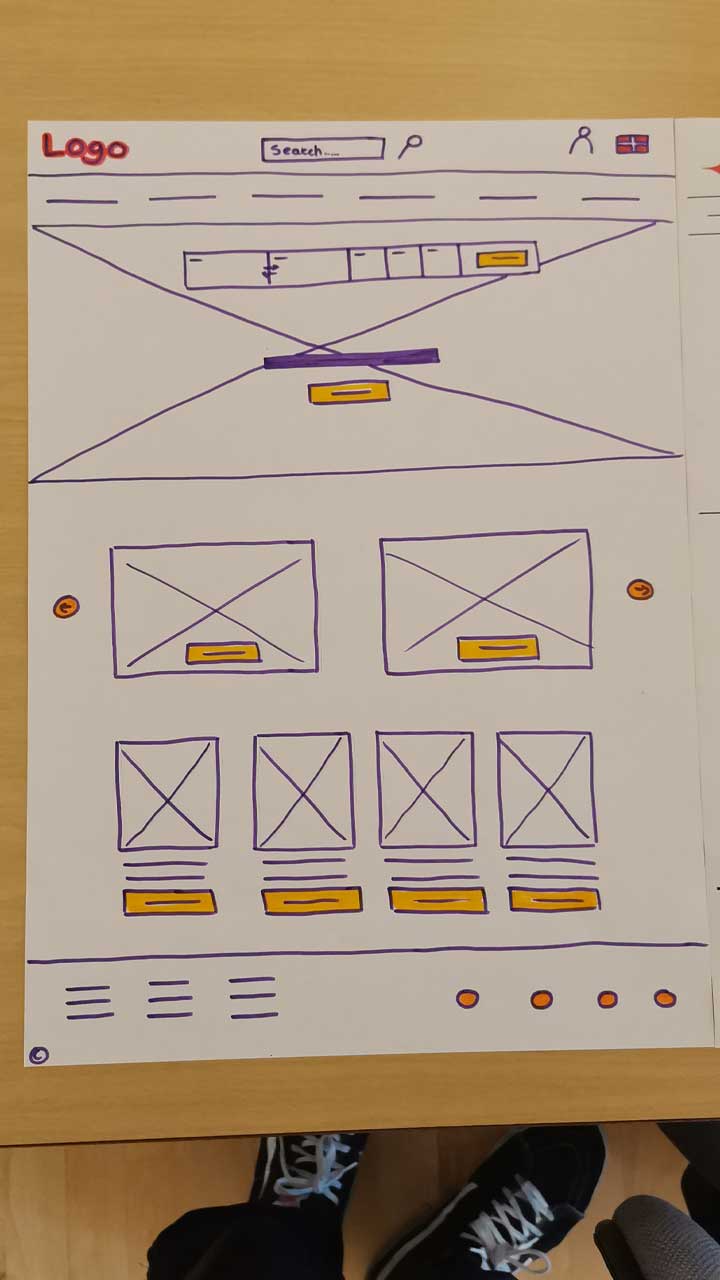 Logo
Search....